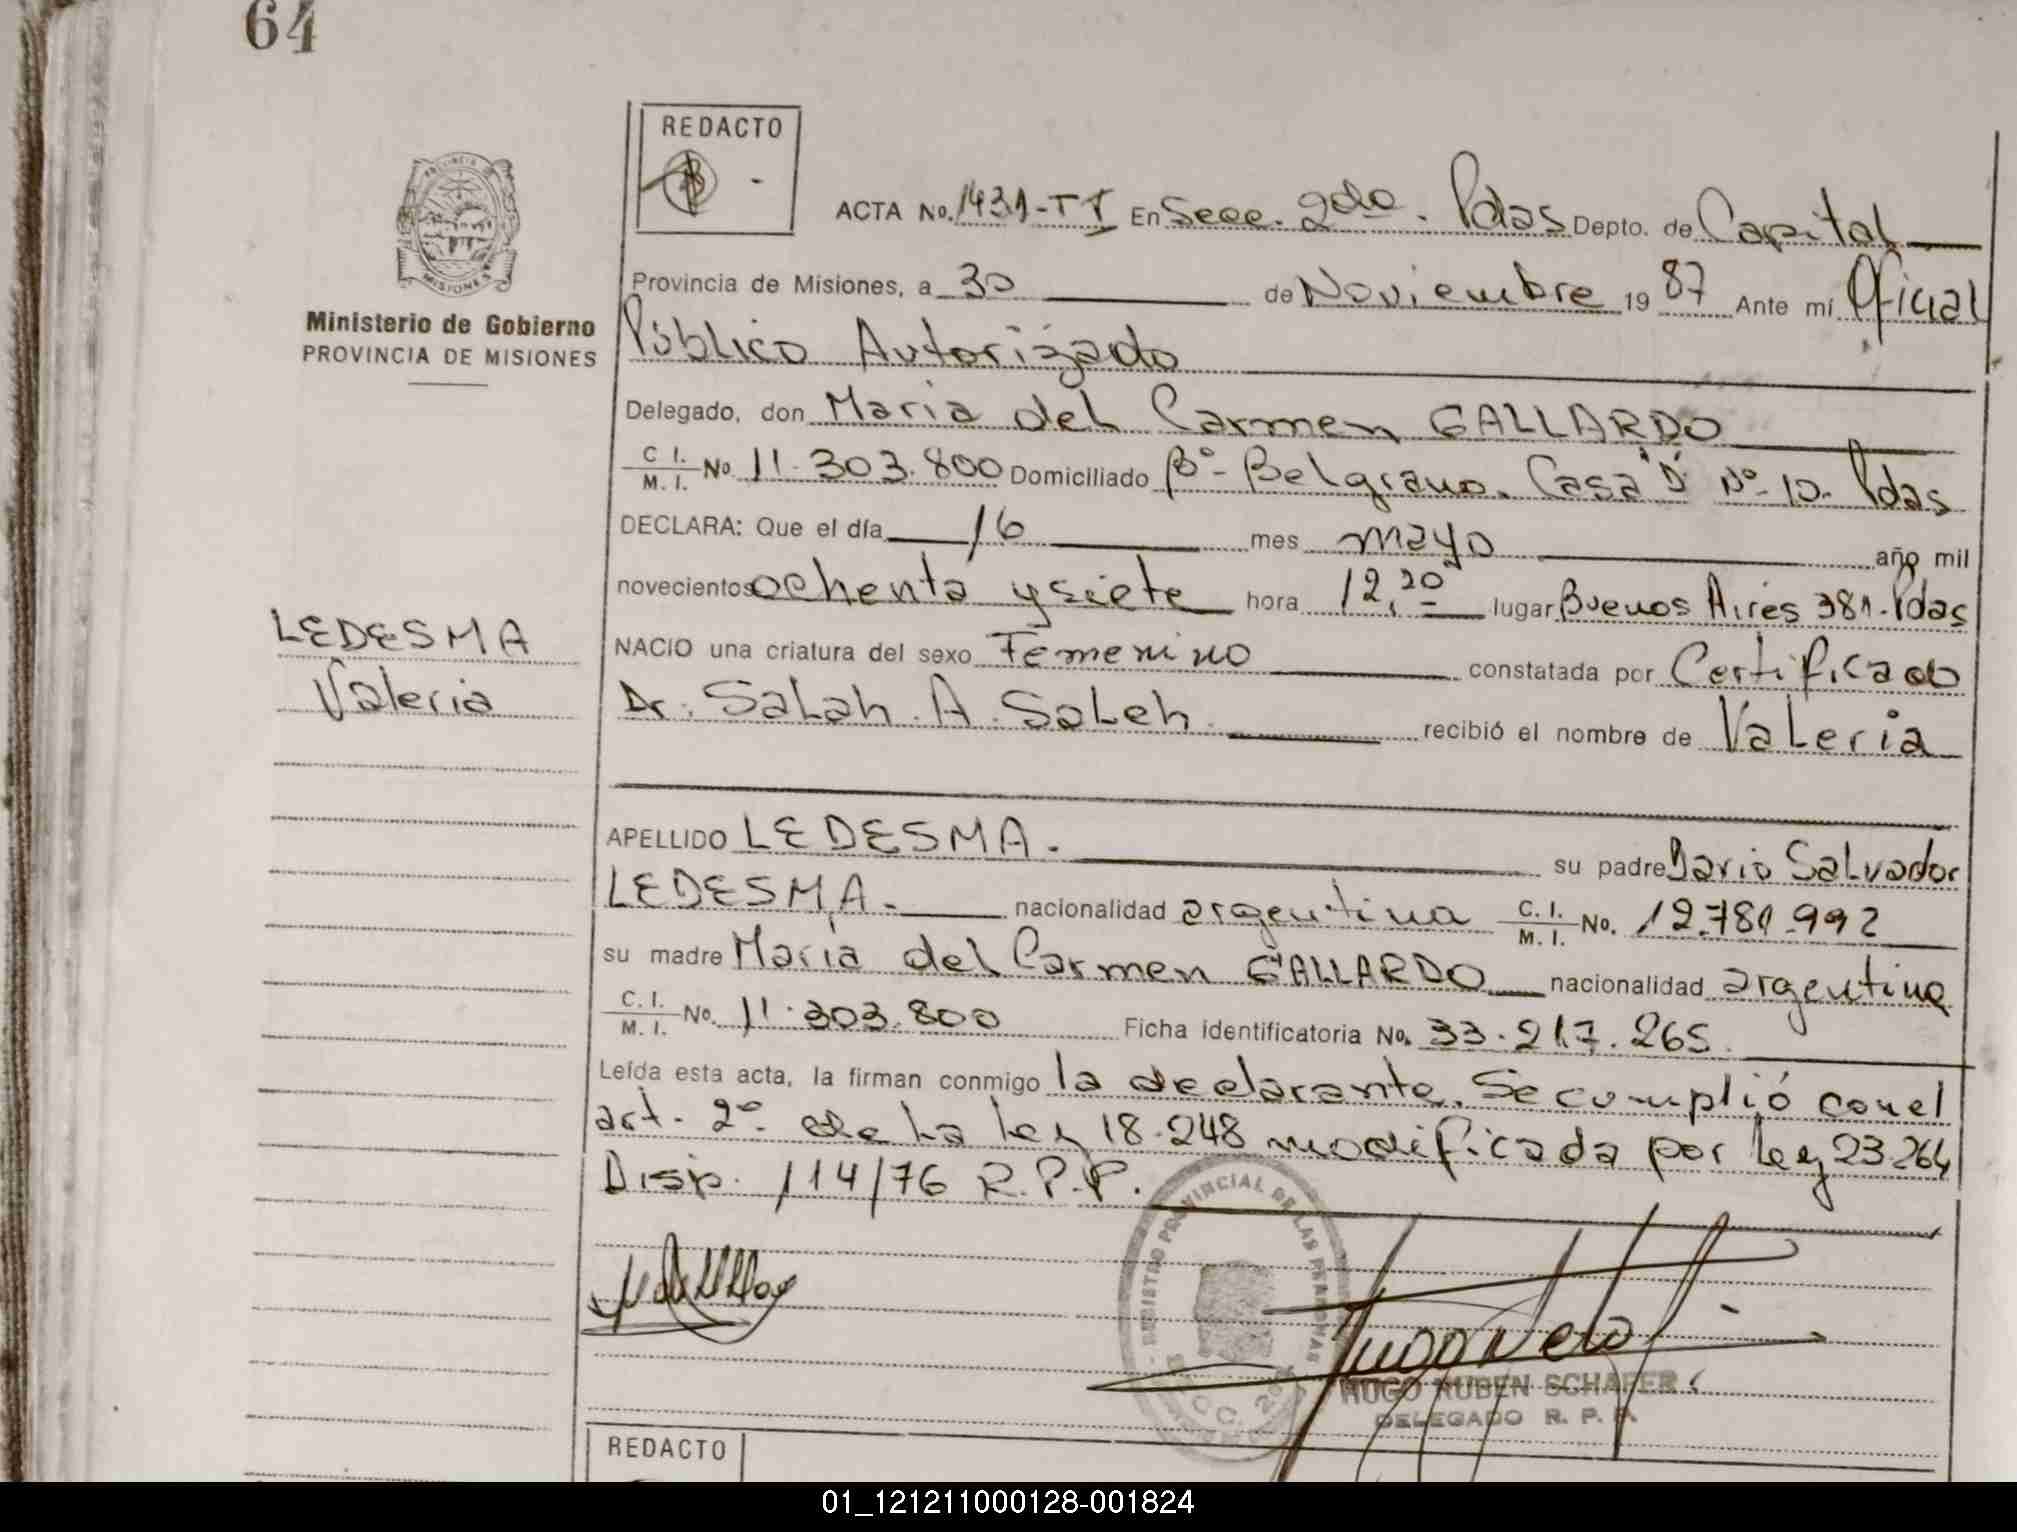 64
REDACTO
ACTA No. 1431-TI En Secc. 2do. Pdas Depto. de Capital
Provincia de Misiones, a 30 de Noviembre 1987 Ante mí Oficial
Ministerio de Gobierno
PROVINCIA DE MISIONES
Público Autorizado
Delegado, don Maria del Carmen GALLARDO
C. I. / M. I. No. 11.303.800 Domiciliado Bº- Belgrano. Casa "D" Nº-10- Pdas
DECLARA: Que el día 16 mes mayo año mil
novecientos ochenta y siete hora 12,20 lugar Buenos Aires 381-Pdas
LEDESMA
Valeria
NACIO una criatura del sexo Femenino constatada por Certificado
Dr. Salah. A. Saleh. recibió el nombre de Valeria
APELLIDO LEDESMA. su padre Dario Salvador
LEDESMA. nacionalidad argentina C. I. / M. I. No. 12.781.992
su madre María del Carmen GALLARDO nacionalidad argentina
C. I. / M. I. No. 11.303.800 Ficha identificatoria No. 33.217.265
Leída esta acta, la firman conmigo la declarante. Se cumplió con el
art. 2º de la ley 18.248 modificada por ley 23.264
Disp. 114/76 R.P.P.
REGISTRO PROVINCIAL DE LAS PERSONAS
HUGO RUBEN SCHAFER
DELEGADO R. P. P.
REDACTO
01_121211000128-001824